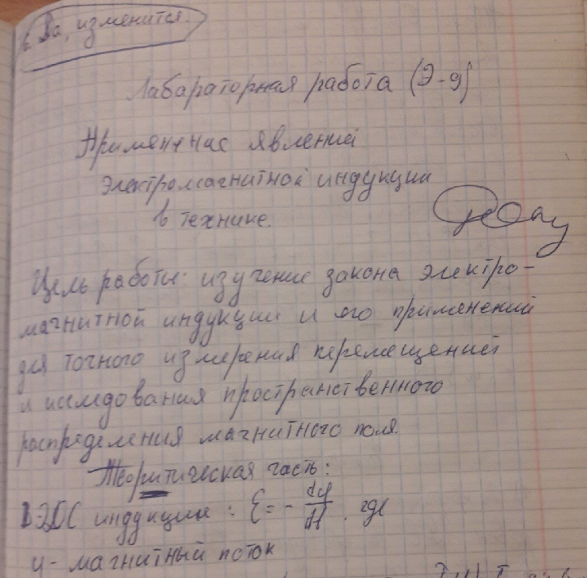 Да, изменится.
Лабараторная работа (Э-9)
Применение явлений
электромагнитной индукции
в технике.
Цель работы: изучение закона электро-
магнитной индукции и его применений
для точного измерения перемещений
и исследования пространственного
распределения магнитного поля.
Теоритическая часть:
ЭДС индукции: Ɛ = - dφ/dt, где
φ - магнитный поток